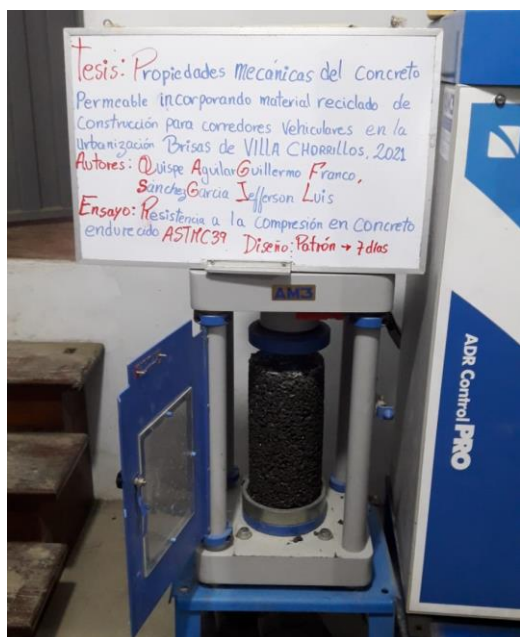 Tesis: Propiedades mecánicas del Concreto
Permeable incorporando material reciclado de
Construcción para corredores Vehiculares en la
Urbanización Brisas de VILLA CHORRILLOS, 2021
Autores: Quispe Aguilar Guillermo Franco,
Sánchez Garcia Jefferson Luis
Ensayo: Resistencia a la compresión en Concreto
endurecido ASTMC39 Diseño: Patrón → 7 días
AM3
ADR Control PRO